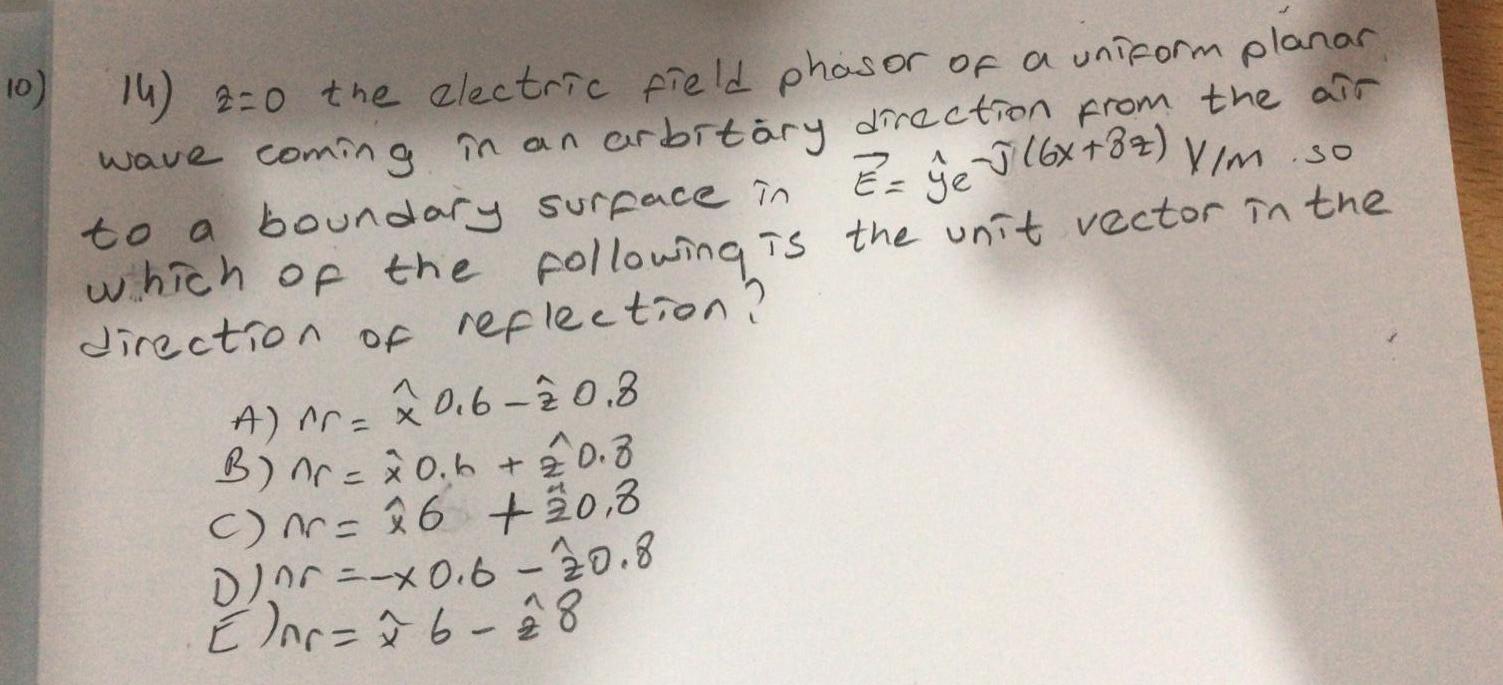 10) 14) z=0 the electric field phasor of a uniform planar
wave coming in an arbitary direction from the air
to a boundary surface in E⃗ = ŷe^-J(6x+8z) V/m . so
which of the following is the unit vector in the
direction of reflection?
A) nr = x̂ 0.6 - ẑ 0.8
B) nr = x̂ 0.6 + ẑ 0.8
C) nr = x̂ 6 + ẑ 0,8
D) nr = -x 0.6 - ẑ 0.8
E) nr = x̂ 6 - ẑ 8